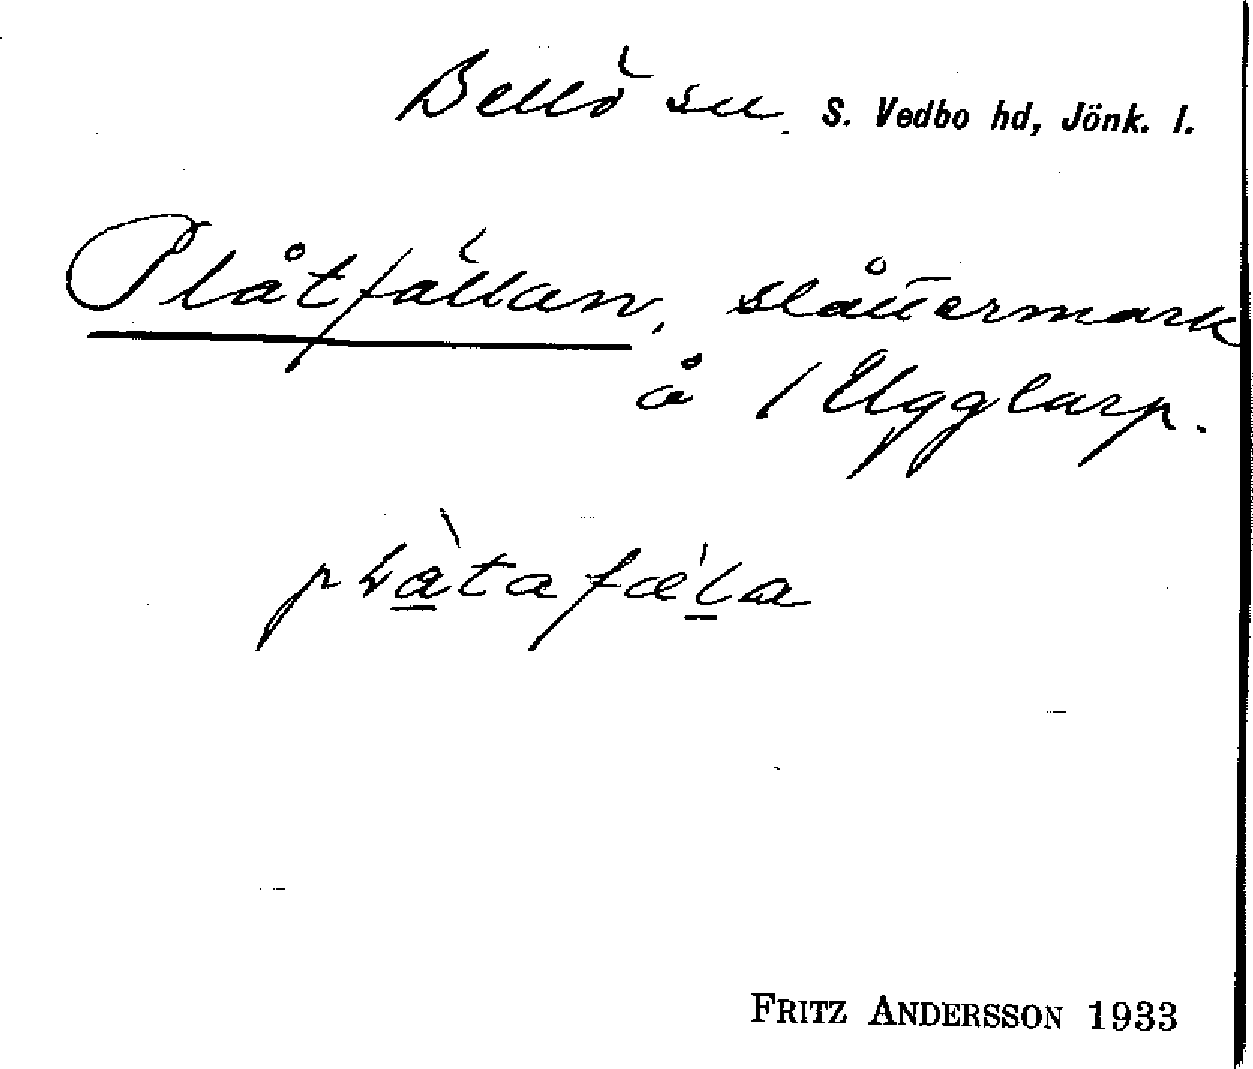 Bellö sn S. Vedbo hd, Jönk. l.
Plåtfällan, slåttermark
å / Ugglarp.
plàtafæ'la
FRITZ ANDERSSON 1933